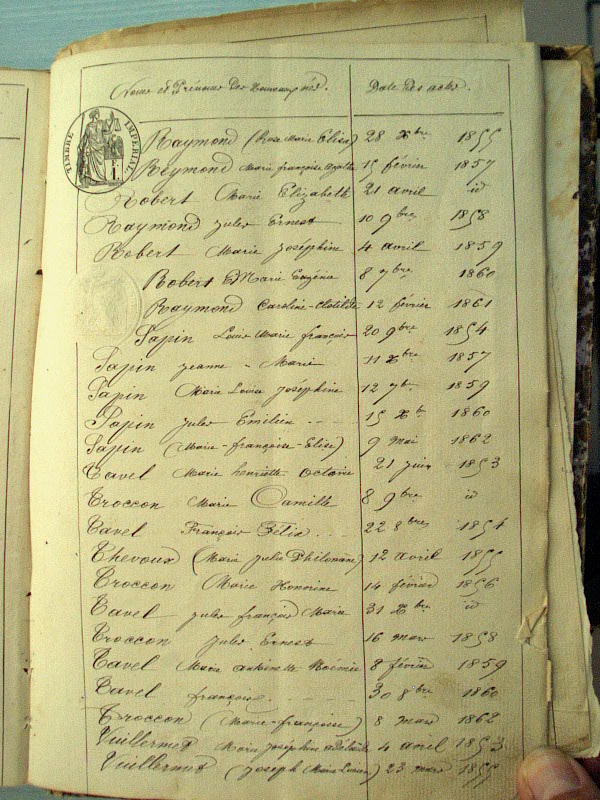 Noms et Prénoms des Nouveaux nés. Date des actes.
TIMBRE IMPÉRIAL
Raymond (Rose Marie Elisa) 28 Xbre 1855
Reymond Marie françoise 15 février 1857
Robert Marie Elizabeth 21 avril id
Raymond jules Ernest 10 9bre 1858
Robert Marie Joséphine 4 avril 1859
Robert Marie Eugénie 8 7bre 1860
Raymond Caroline-Clotilde 12 février 1861
Sapin Louis Marie françois 20 9bre 1854
Sapin jeanne - Marie 11 Xbre 1857
Sapin Marie Louise Joséphine 12 7bre 1859
Sapin jules Emilien 15 Xbre 1860
Sapin (Marie-françoise-Elise) 9 mai 1862
Tavel Marie henriette Octavie 21 juin 1853
Troccon Marie Camille 8 9bre id
Tavel François Félix 22 8bre 1854
Thevoux (Marie Julie Philomène) 12 avril 1855
Troccon Marie Honorine 14 février 1856
Tavel jules françois Marie 31 Xbre id
Troccon jules Ernest 16 mars 1858
Tavel Marie antoinette Noémie 8 février 1859
Tavel françois 30 8bre 1860
Troccon (Marie-françoise) 8 mars 1862
Vuillermet Marie joséphine adélaide 4 avril 1853
Vuillermet (joseph Marie Lucien) 23 mars 1855